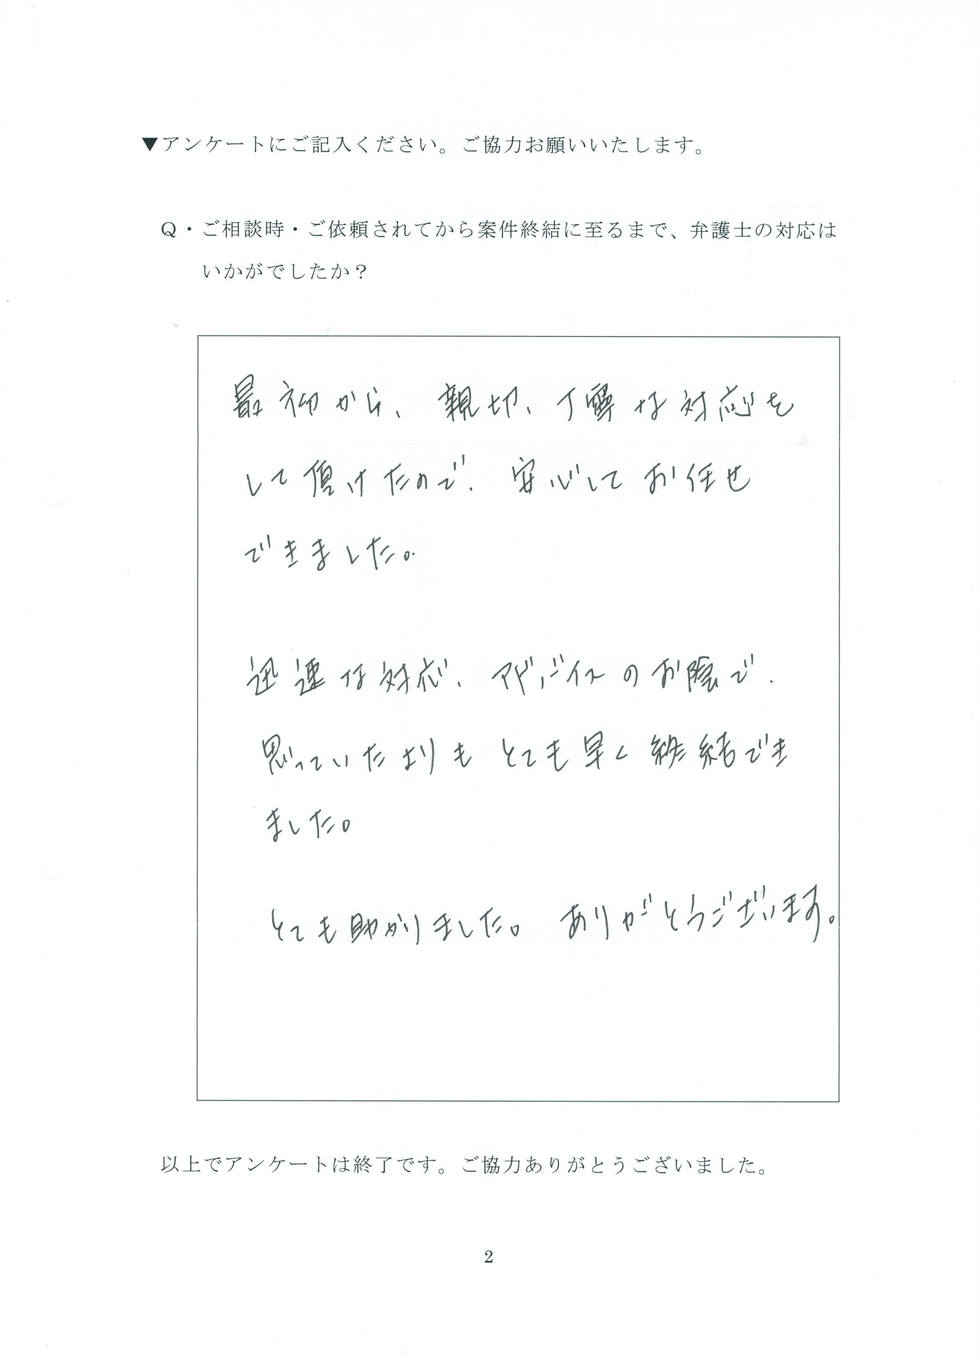 ▼アンケートにご記入ください。ご協力お願いいたします。
Q・ご相談時・ご依頼されてから案件終結に至るまで、弁護士の対応は
いかがでしたか？
最初から、親切、丁寧な対応を
して頂けたので、安心してお任せ
できました。
迅速な対応、アドバイスのお陰で、
思っていたよりもとても早く終結でき
ました。
とても助かりました。ありがとうございます。
以上でアンケートは終了です。ご協力ありがとうございました。
2